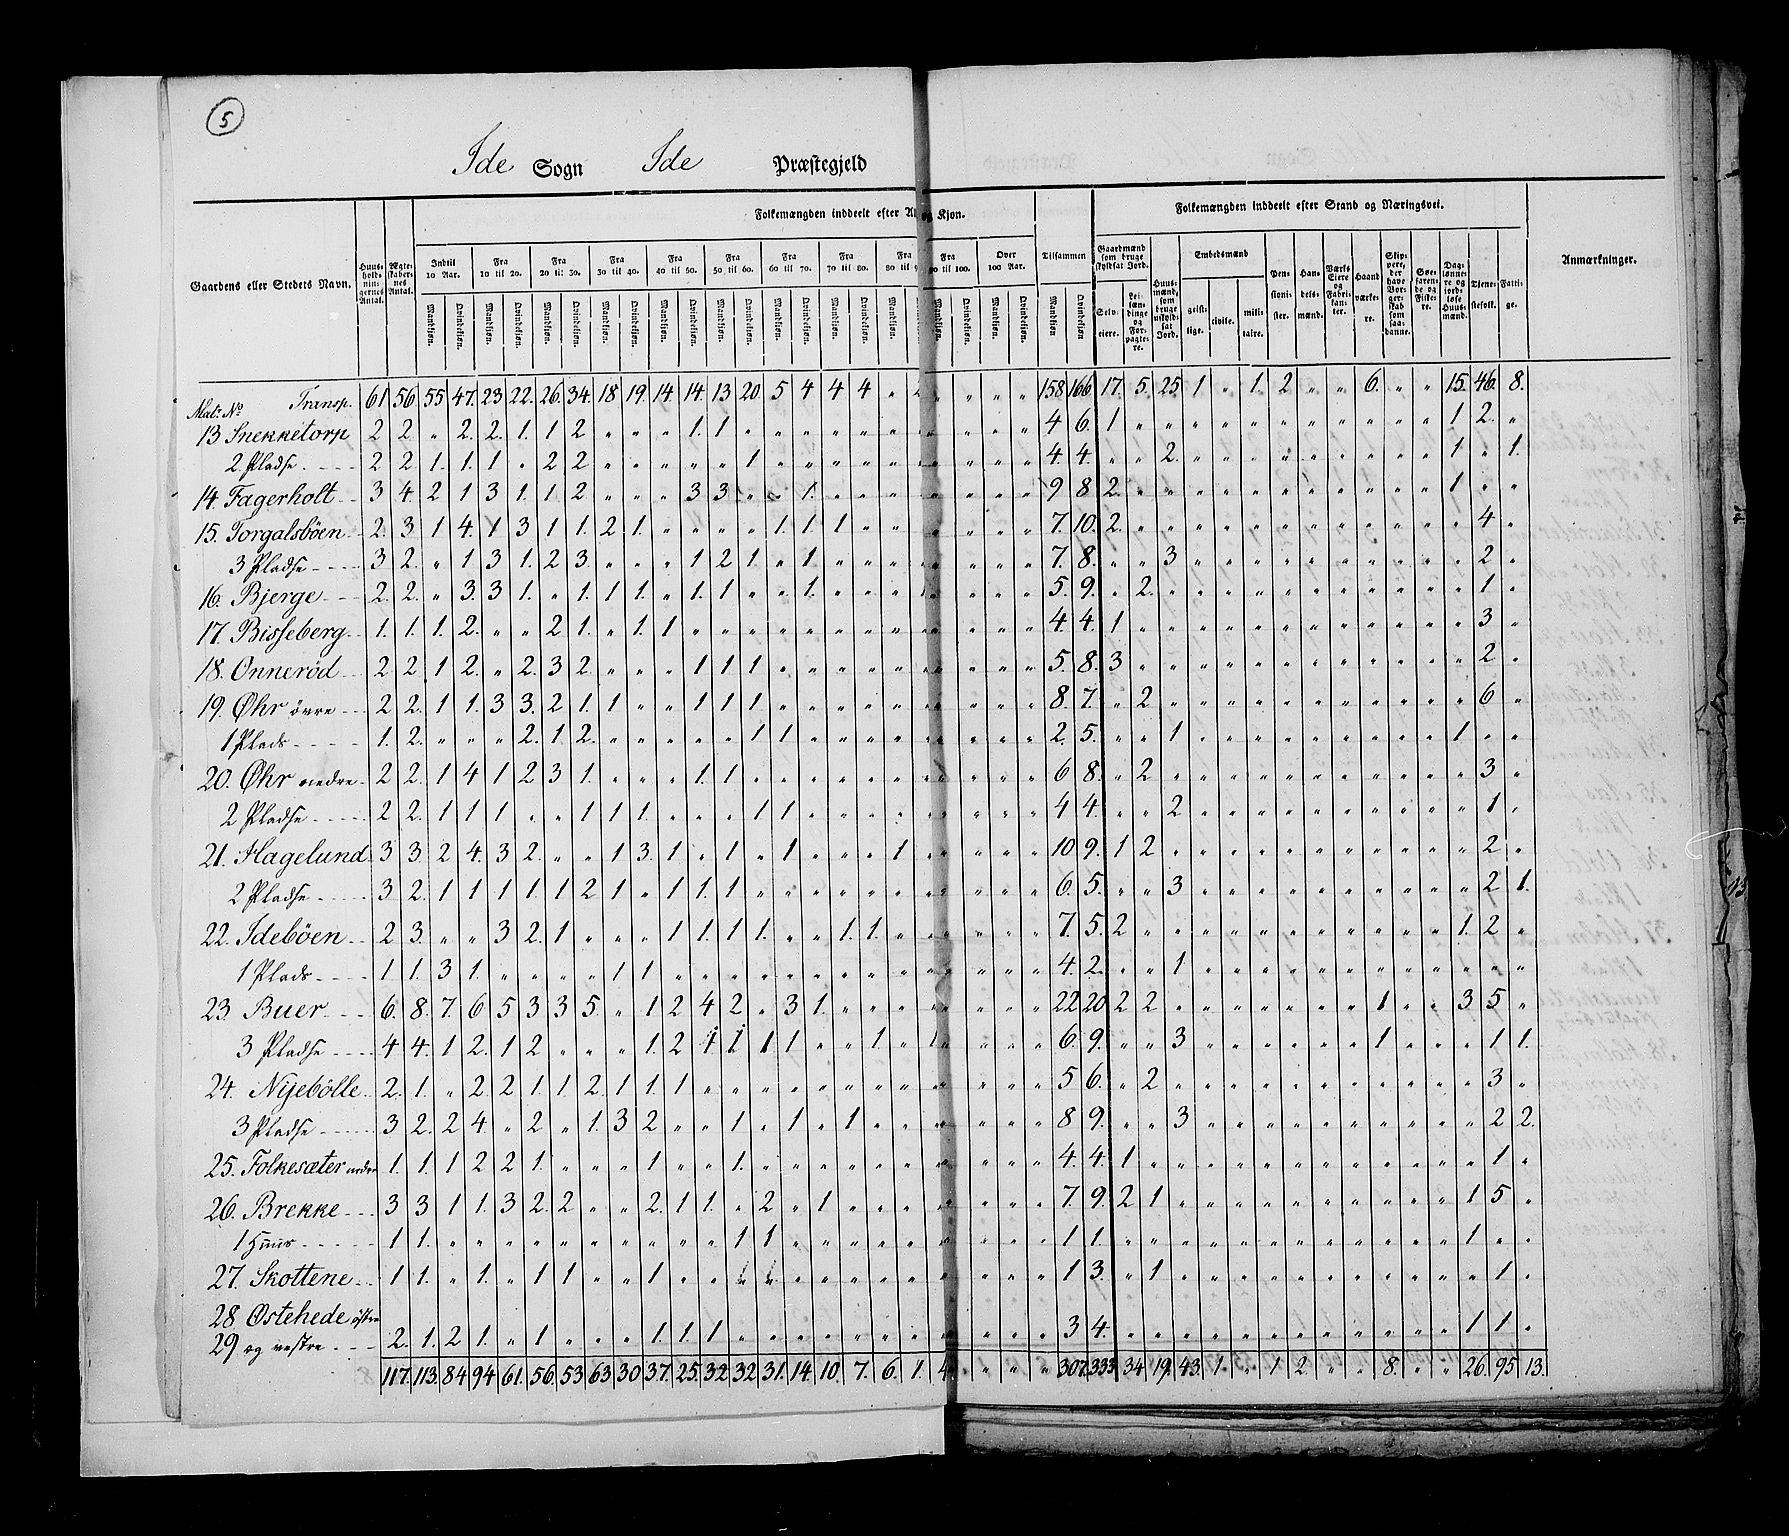 5
Ide Sogn Ide Præstegjeld
Gaardens eller Stedets Navn.
Huusholdningernes Antal.
Ægteskabernes Antal.
Folkemængden inddeelt efter Al og Kjøn.
Indtil 10 Aar.
Fra 10 til 20.
Fra 20 til 30.
Fra 30 til 40.
Fra 40 til 50.
Fra 50 til 60.
Fra 60 til 70.
Fra 70 til 80.
Fra 80 til 9
90 til 100.
Over 100 Aar.
Tilsammen
Mandkjøn. Qvindekjøn.
Folkemængden inddeelt efter Stand og Næringsvei.
Gaardmænd som bruge skyldsat Jord.
Selveiere.
Leilændinge og Forpagtere.
Huusmænd, som bruge uskyldsat Jord.
Embedsmænd
geistlige. civile. militaire.
Pensionister.
Handelsmænd.
Værks Eiere og Fabrikanter.
Haandværkere.
Skippere, der have Borgerskab som saadanne.
Søefarende og Fiskere.
Daglønnere og jordløse Huusmænd.
Tjenestefolk.
Fattige.
Anmærkninger.
Matr. No Transp. 61 56 55 47. 23 22. 26. 34. 18 19. 14 14. 13 20. 5 4 4 4 „ 158 166 17. 5. 25. 1 „ 1. 2 „ „ 6. „ „ 15. 46. 8.
13 Snekketorp 2 2 „ 2. 2. 1. 1 2 „ „ „ 1. 1 „ „ „ „ „ „ „ „ „ „ „ 4 6. 1 „ „ „ „ „ „ „ „ „ „ „ 1 2. „
2 Pladse 2 2 1. 1. 1 „ 2 2 „ „ „ „ „ 1 „ „ „ „ „ „ „ „ „ „ 4. 4. „ „ 2. „ „ „ „ „ „ „ „ „ 1 „ 1.
14. Fagerholt 3 4 2 1 3 1. 1 2 „ „ „ 3 3 „ „ 1. „ „ „ „ „ „ „ „ 9 8 2. „ „ „ „ „ „ „ „ „ „ „ 1 „ „
15. Torgalsböen 2. 3 1 4. 1 3 1 1. 2 1. „ „ „ „ 1. 1 1 „ „ „ „ „ „ „ 7. 10. 2. „ „ „ „ „ „ „ „ „ „ „ „ 4 „
3 Pladse 3 2. „ 1 3 1. 2 3. „ „ „ 1 2 1. „ 1 „ „ „ „ „ „ „ „ 7. 8. „ „ 3 „ „ „ „ „ „ „ „ „ „ 2 „
16. Bjerge 2. 2. „ 3. 3 1. „ 1. 1 1. „ 1. 1 „ „ 1. „ „ „ „ „ „ „ 5. 9. „ 2. „ „ „ „ „ „ „ „ „ „ „ 1 „
17. Bisseberg 1. 1. 1. 2. „ „ 2 1. „ 1. 1 „ „ „ „ „ „ „ „ „ „ „ „ „ 4. 4. 1 „ „ „ „ „ „ „ „ „ „ „ „ 3 „
18. Onneröd 2 2 1 2. „ 2. 3 2. „ „ „ 1 1 1 „ „ „ „ „ „ „ „ „ „ 5. 8. 3 „ „ „ „ „ „ „ „ „ „ „ „ 2 „
19. Øhr övre 2 2. 1 1. 3 3. 2 1. 1 „ „ 1 1 1. „ „ „ „ „ „ „ „ „ „ 8. 7. „ 2 „ „ „ „ „ „ „ „ „ „ „ 6 „
1 Plads 1. 2. „ „ „ 2. 1 2. „ „ „ „ „ 1 1 „ „ „ „ „ „ „ „ „ 2 5. „ „ 1 „ „ „ „ „ „ „ „ „ 1 „ „
20. Øhr nedre 2 2. 1 4 1 2 3 1. „ „ „ 1. 1 „ „ „ „ „ „ „ „ „ „ „ 6 8. „ 2 „ „ „ „ „ „ „ „ „ „ „ 3 „
2 Pladse 2 2. 1 1 1 „ „ 1 1 1. „ „ „ 1 1 „ „ „ „ „ „ „ „ „ 4 4. „ „ 2 „ „ „ „ „ „ „ „ „ „ 1 „
21. Hagelund 3 3. 2 4. 3 2. „ „ 1 3. 1 „ 1 „ 1 „ „ „ 1 „ „ „ „ „ 10 9. 1 2 „ „ „ „ „ „ „ „ „ „ „ 2 „
2 Pladse 3 2. 1 1 1 1. 1 2 1 „ 1 1. 1 „ „ „ „ „ „ „ „ „ „ „ 6. 5. „ „ 3 „ „ „ „ „ „ „ „ „ „ 2 1.
22. Idebóen 2 3. „ „ 3 2. 1 „ „ „ 1 1. 1 1. „ „ 1. 1. „ „ „ „ „ „ 7. 5. 2 „ „ „ „ „ „ „ „ „ „ „ 1. 2 „
1 Plads 1 1. 3 1. „ „ „ „ 1 1 „ „ „ „ „ „ „ „ „ „ „ „ „ „ 4. 2. „ „ 1 „ „ „ „ „ „ „ „ „ „ „ „
23. Buer 6. 8. 7. 6 5 3 3 5. „ 1 2 4 2 „ 3 1. „ „ „ „ „ „ „ „ 22 20 2 2 „ „ „ „ „ „ „ 1 „ „ 3 5 „
3 Pladse 4 4. 1 2. 1 2 „ „ „ 1. 2 1 1 1. 1 „ „ 1. „ 1 „ „ „ „ 6. 9. „ „ 3 „ „ „ „ „ „ 1 „ „ „ 1 1.
24. Nyebölle 2. 1. „ 2 2 1 1 2. 1 1. 1 „ „ „ „ „ „ „ „ „ „ „ „ „ 5 6. „ 2 „ „ „ „ „ „ „ „ „ „ „ 3 „
3 Pladse 3 2. 2 4. „ 2 „ 1. 3 2 „ „ 1 „ 1 „ 1 „ „ „ „ „ „ „ 8 9. „ „ 3 „ „ „ „ „ „ „ „ „ „ 2 2.
25. Folkesæter nedre 1. 1. 1 2 2 1. „ „ „ 1 „ „ 1. „ „ „ „ „ „ „ „ „ „ „ 4. 4. 1 „ „ „ „ „ „ „ „ „ „ „ „ 1 „
26. Brekke 3 3 1 1. 3 2. 2 „ „ 2. 1 1. „ 2 „ 1 „ „ „ „ „ „ „ „ 7. 9. 2 1 „ „ „ „ „ „ „ „ „ „ 1 5 „
1 Huus 1 1. „ „ „ „ „ „ „ „ „ „ 1 1. „ „ „ „ „ „ „ „ „ „ 1 1. „ „ „ „ „ „ „ „ „ „ „ „ 1 „ „
27. Skottene 1 1. „ 1. „ 1 1 „ „ 1 „ „ „ „ „ „ „ „ „ „ „ „ 1 3. „ 1 „ „ „ „ „ „ „ „ „ „ „ 1 „
28 Østehede östre
29 og vestre 2. 1. 2 1. „ 1 „ „ „ 1. 1. 1 „ „ „ „ „ „ „ „ „ „ „ „ 3 4. „ „ „ „ „ „ „ „ „ „ „ „ 1 1 „
117. 113. 84 94 61. 56 53 63 30 37. 25. 32 32 31. 14 10. 7. 6. 1. 4 „ „ „ „ 307. 333 34 19. 43. 1. „ 1 2 „ „ 8. „ „ 26. 95 13.